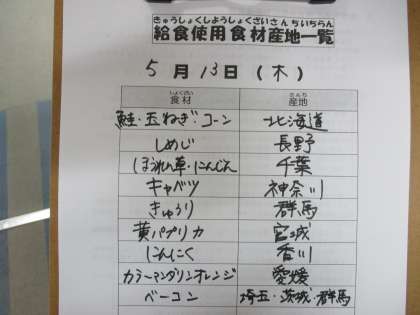 きゅうしょくしようしょくざいさんちいちらん
給食使用食材産地一覧
5月13日(木)
しょくざい さんち
食材 産地
鮭・玉ねぎ・コーン 北海道
しめじ 長野
ほうれん草・にんじん 千葉
キャベツ 神奈川
きゅうり 群馬
黄パプリカ 宮城
にんにく 香川
カラーマンダリンオレンジ 愛媛
ベーコン 埼玉・茨城・群馬